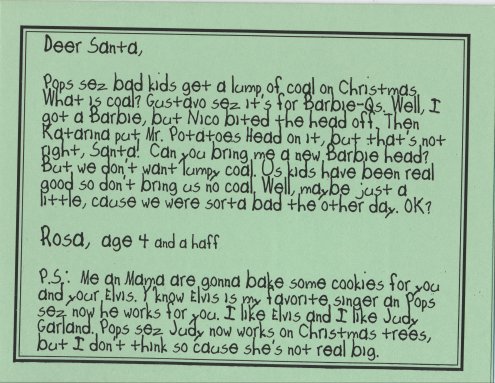 Deer Santa,
Pops sez bad kids get a lump of coal on Christmas.
What is coal? Gustavo sez it's for Barbie-Qs. Well, I
got a Barbie, but Nico bited the head off. Then
Katarina put Mr. Potatoes Head on it, but that's not
right, Santa! Can you bring me a new Barbie head?
But we don't want lumpy coal. Us kids have been real
good so don't bring us no coal. Well, maybe just a
little, cause we were sorta bad the other day. OK?
Rosa, age 4 and a haff
P.S.: Me an Mama are gonna bake some cookies for you
and your Elvis. Y'know Elvis is my favorite singer an Pops
sez now he works for you. I like Elvis and I like Judy
Garland. Pops sez Judy now works on Christmas trees,
but I don't think so cause she's not real big.